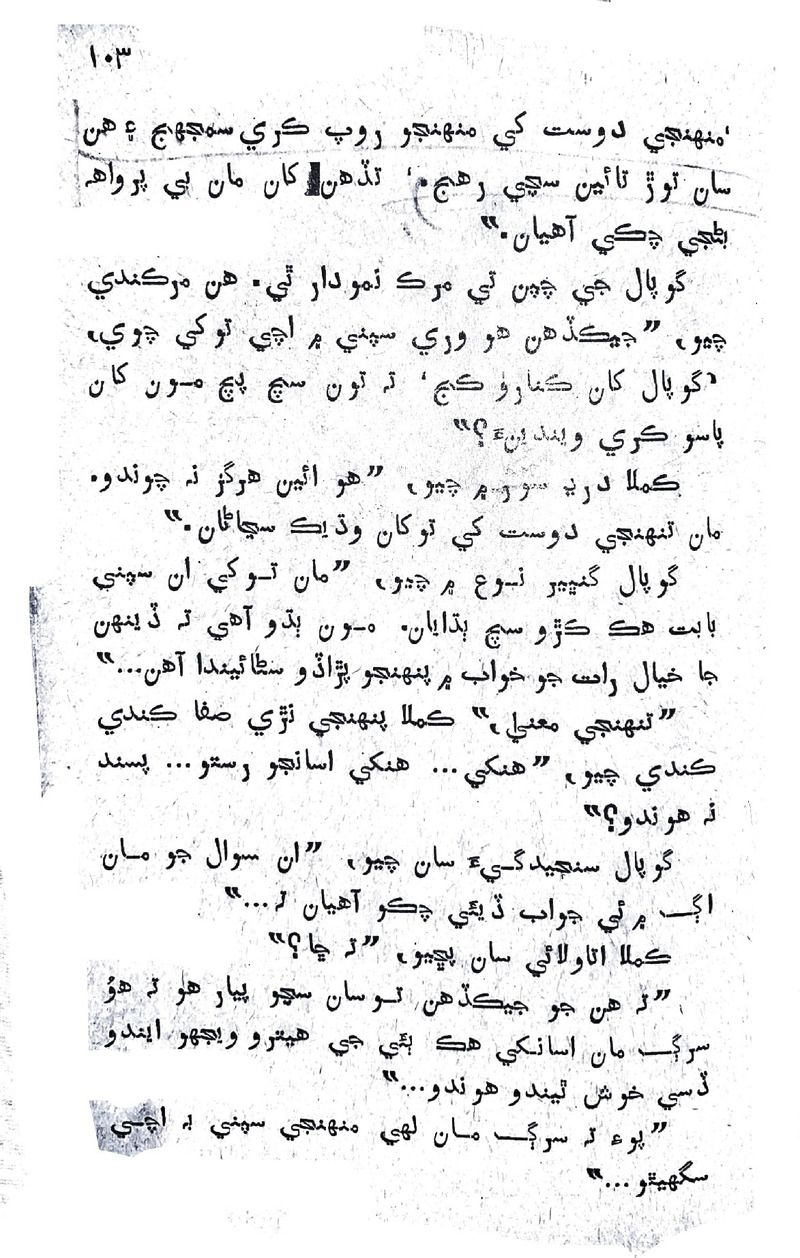 ١٠٣
'منهنجي دوست کي منهنجو روپ ڪري سمجهج ۽ هن
سان توڙ تائين سچي رهج.' تڏهن کان مان بي پرواهہ
بڻجي چڪي آهيان.“
گوپال جي چپن تي مرڪ نمودار ٿي. هن مرڪندي
چيو، ”جيڪڏهن هو وري سپني ۾ اچي توکي چوي،
'گوپال کان ڪنارو ڪج' تہ تون سچ پچ مـون کان
پاسو ڪري ويندينءَ؟“
ڪملا درد سور ۾ چيو، ”هو ائين هرگز نہ چوندو.
مان تنهنجي دوست کي توکان وڌيڪ سڃاڻان.“
گوپال گنڀير نـوع ۾ چيو، ”مان تـوکي ان سپني
بابت هڪ ڪڙو سچ ٻڌايان. مـون ٻڌو آهي تہ ڏينهن
جا خيال رات جو خواب ۾ پنهنجو پڙاڏو سڻائيندا آهن...“
”تنهنجي معنيٰ،“ ڪملا پنهنجي نڙي صفا ڪندي
ڪندي چيو، ”هنکي... هنکي اسانجو رستو... پسند
نہ هوندو؟“
گوپال سنجيدگـيءَ سان چيو، ”ان سوال جو مـان
اڳـ ۾ ئي جواب ڏيئي چڪو آهيان تہ...“
ڪملا اتاولائي سان پڇيو، ”تہ ڇا؟“
”تہ هن جو جيڪڏهن تـوسان سچو پيار هو تہ هوُ
سرڳـ مان اسانـکي هڪ ٻئي جي هيترو ويجهو ايندو
ڏسي خوش ٿيندو هوندو...“
”پوءِ تہ سرڳـ مـان لهي منهنجي سپني ۾ اچـي
سگهيٿو...“